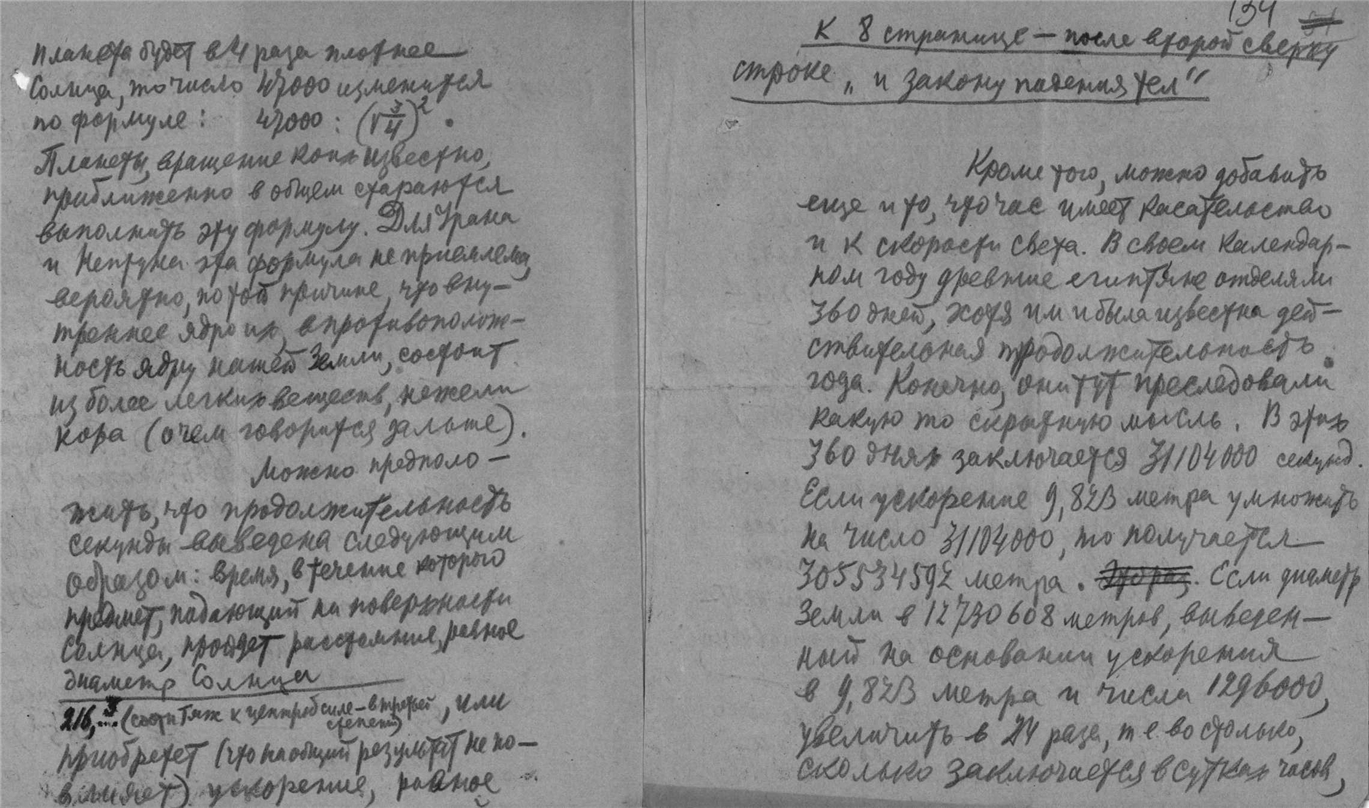 планета будет в 4 раза плотнее
Солнца, то число 47000 изменится
по формуле: 47000 : (√3/4)².
Планеты, вращение коих известно,
приближенно в общем стараются
выполнить эту формулу. Для Урана
и Нептуна эта формула не приемлема,
вероятно, по той причине, что вну-
треннее ядро их, в противополож-
ность ядру нашей Земли, состоит
из более легких веществ, нежели
кора (о чем говорится дальше).
Можно предполо-
жить, что продолжительность
секунды выведена следующим
образом: время, в течение которого
предмет, падающий на поверхности
Солнца, пройдет расстояние, равное
диаметр Солнца
216,...³ (соотн тяж к центроб силе – в третьей степени), или
приобретет (что на общий результат не по-
влияет) ускорение, равное
134
К 8 странице – после второй сверху
строке „и закону падения тел“
Кроме того, можно добавить
еще и то, что час имеет касательство
и к скорости света. В своем календар-
ном году древние египтяне отделяли
360 дней, хотя им и была известна дей-
ствительная продолжительность
года. Конечно, они тут преследовали
какую то скрытную мысль. В этих
360 днях заключается 31104000 секунд.
Если ускорение 9,823 метра умножить
на число 31104000, то получается
305534592 метра. Если диаметр
Земли в 12730608 метров, выведен-
ный на основании ускорения
в 9,823 метра и числа 1296000,
увеличить в 24 раза, т е во столько,
сколько заключается в сутках часов,